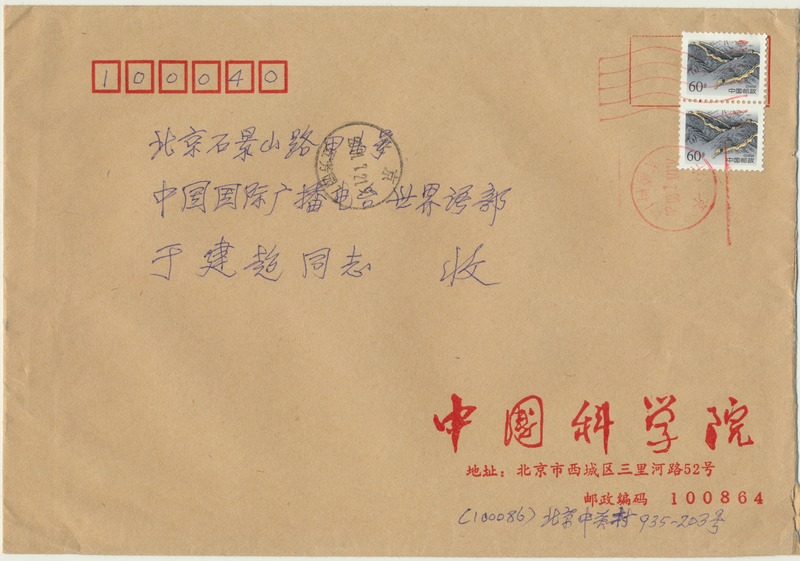 100040
60分
中国邮政
60分
中国邮政
北京石景山路甲
中国国际广播电台世界语部
于建超同志 收
中国科学院
地址：北京市西城区三里河路52号
邮政编码 100864
(100086) 北京中关村935-203号